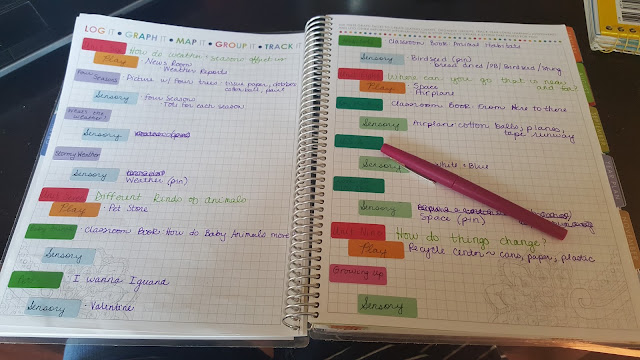 LOG IT • GRAPH IT • MAP IT • GROUP IT • TRACK IT
How do weather + seasons affect us
Play
· News Room
Weather Reports
Four Seasons
· Picture w/ four trees - tissue paper, dobbers
cotton ball, paint
Sensory
· Four Seasons
Tors for each season
What's the weather
Sensory
Stormy Weather
Sensory
Weather (pin)
Different kinds of animals
Play
· Pet Store
· Classroom Book: How do Baby Animals move
Sensory
· I wanna Iguana
Sensory
· Valentine
· Classroom Book Animal Habitats
Sensory
· Birdseed (pin)
bread dries/PB/Birdseed/string
Where can you go that is near
and far?
Play
· Space
Airplane
Classroom Book From Here to there
Sensory
Airplane: cotton balls, planes,
tape runway
Sensory
White + Blue
Sensory
Space (pin)
Unit Nine
How do things change?
Play
Recycle Center - cans, paper, plastic
Growing Up
Sensory